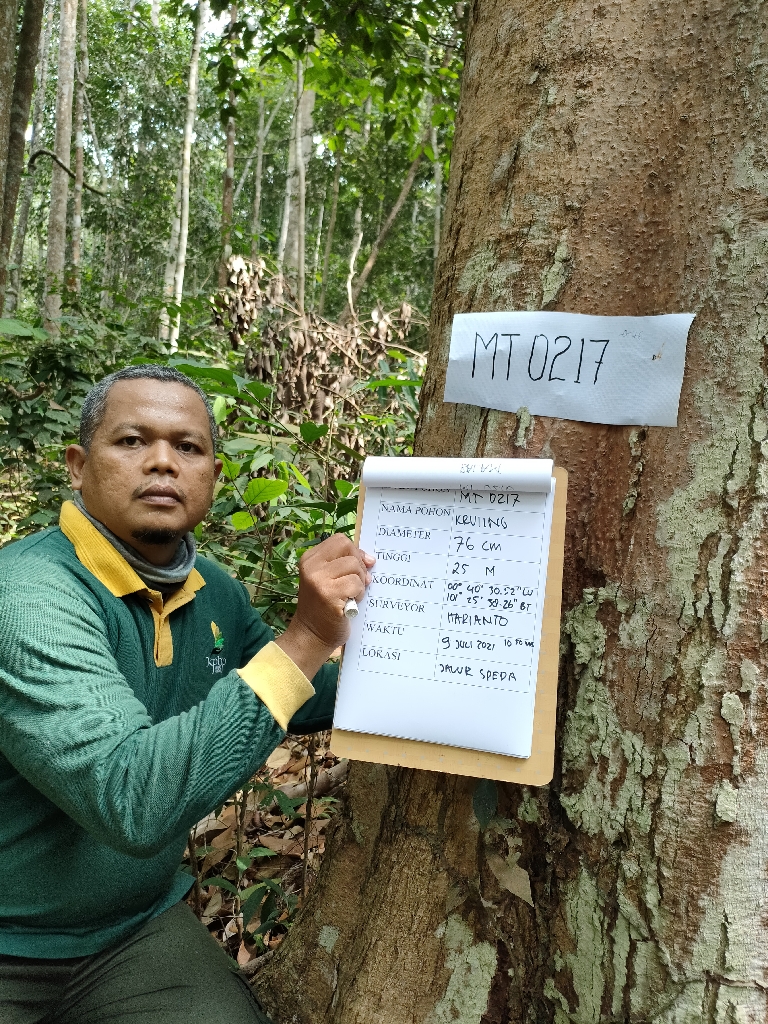 MT 0217
MT 0217
NAMA POHON KRUIING
DIAMETER 76 cm
TINGGI 25 M
KOORDINAT 00° 40' 30.52" LU
101° 25' 59.26" BT
SURVEYOR HARIANTO
WAKTU 9 JULI 2021
LOKASI JALUR SPEDA